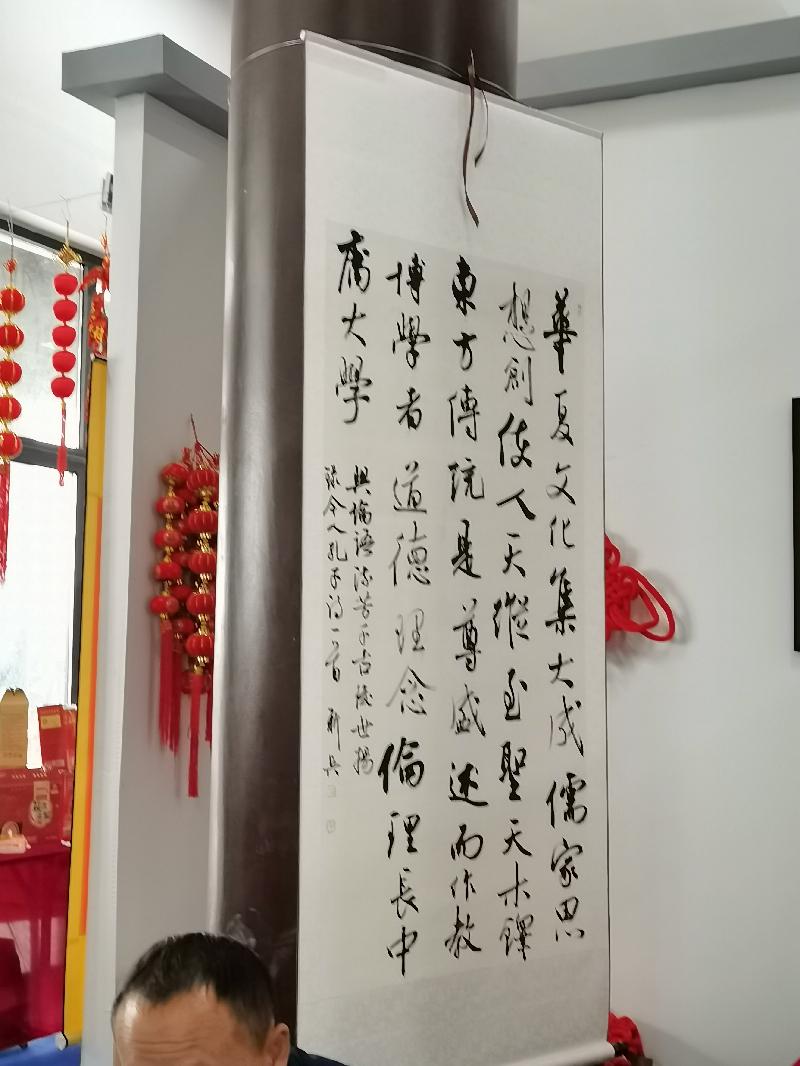 華夏文化集大成儒家思
想創使人天縱至聖天木鐸
東方傳統是尊盛述而作教
博學者道德理念倫理長中
庸大學
與論語流芳千古後世揚
錄今人孔子詩一首